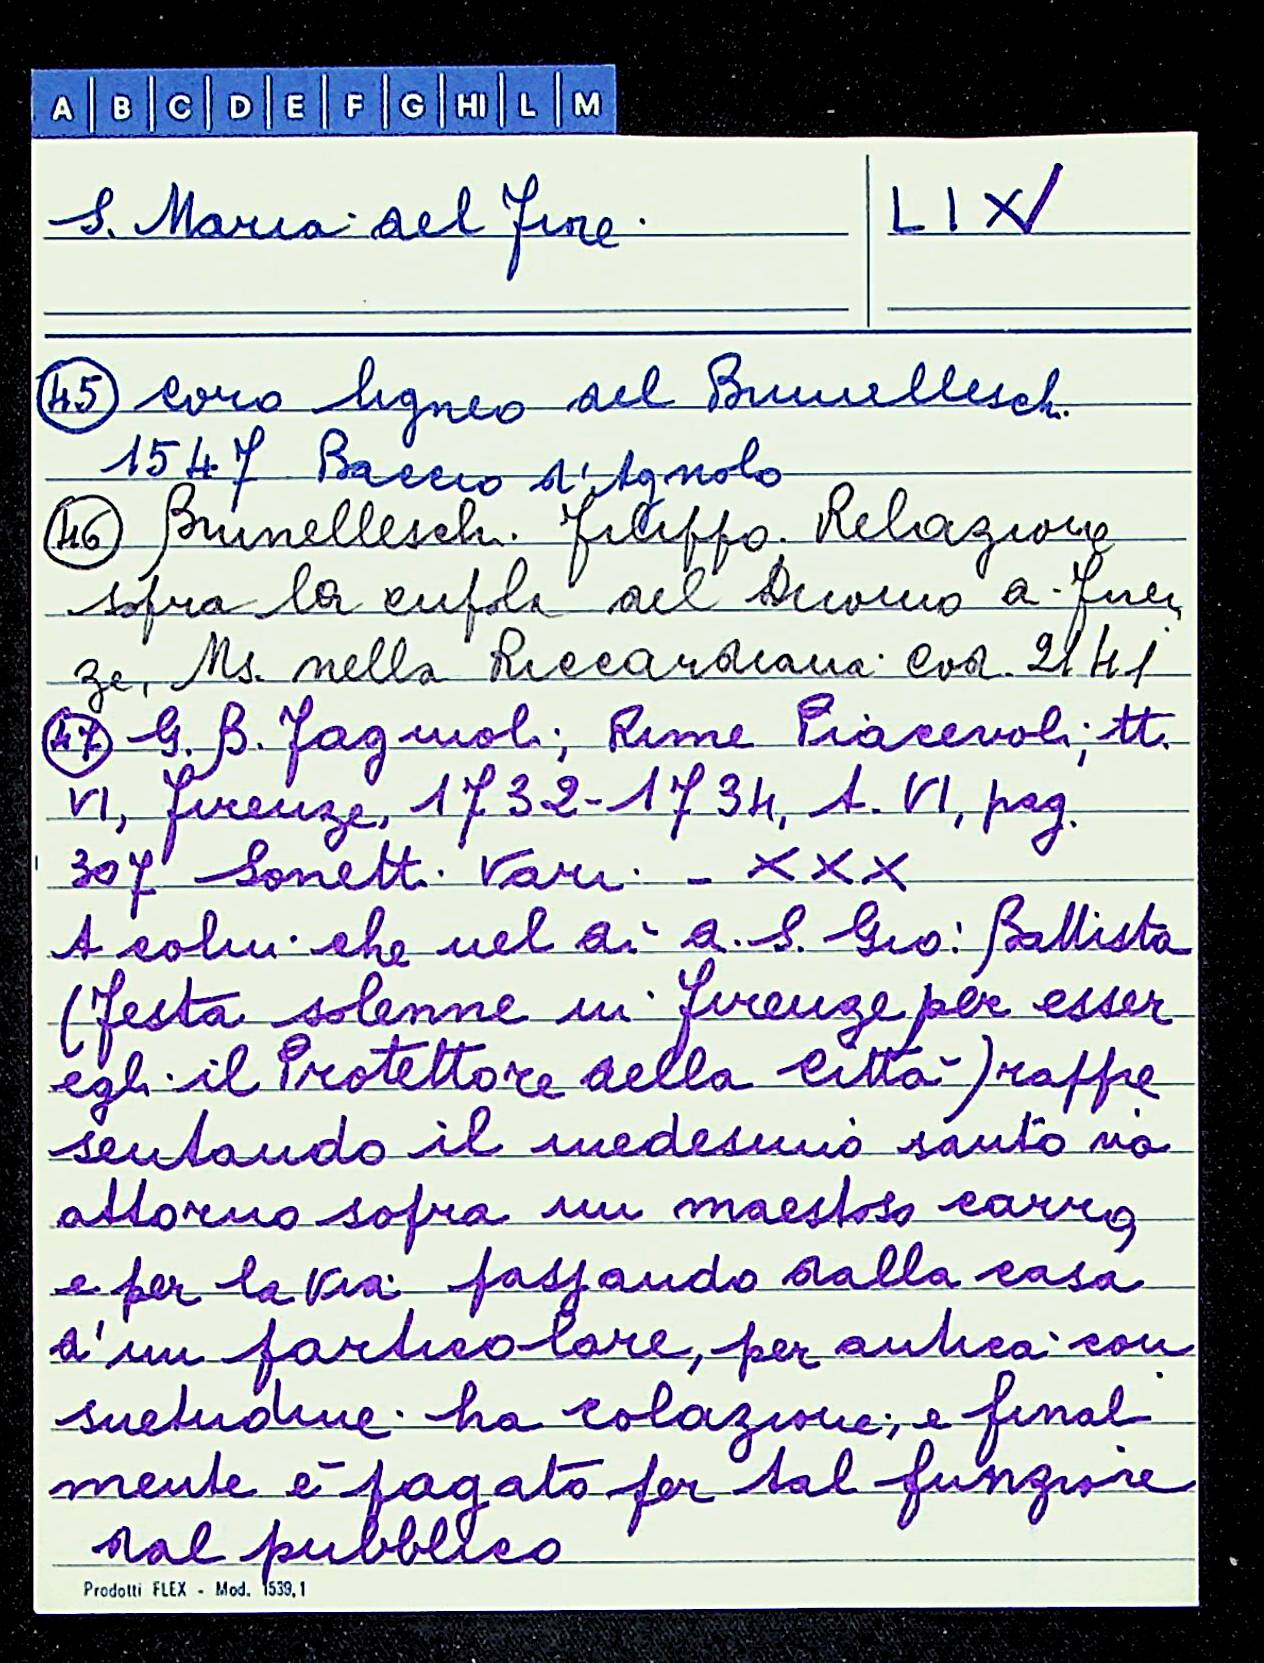 A B C D E F G HI L M
S. Maria del Fiore.
LIX
45 coro ligneo del Brunelleschi
1547 Baccio d'Agnolo
46 Brunelleschi Filippo. Relazione
sopra la cupola del Duomo di Firen
ze, Ms. nella Riccardiana Cod. 2141
47 G. B. Fagiuoli; Rime Piacevoli; tt.
VI, Firenze, 1732-1734, t. VI, pag.
307 Sonetti Vari. - XXX
A colui che nel dì di S. Gio: Battista
(festa solenne in Firenze per esser
egli il Protettore della Città) rappre
sentando il medesimo santo và
attorno sopra un maestoso carro,
e per la via passando dalla casa
d'un particolare, per antica con
suetudine ha colazione; e final
mente è pagato per tal funzione
dal pubblico
Prodotti FLEX - Mod. 1539,1